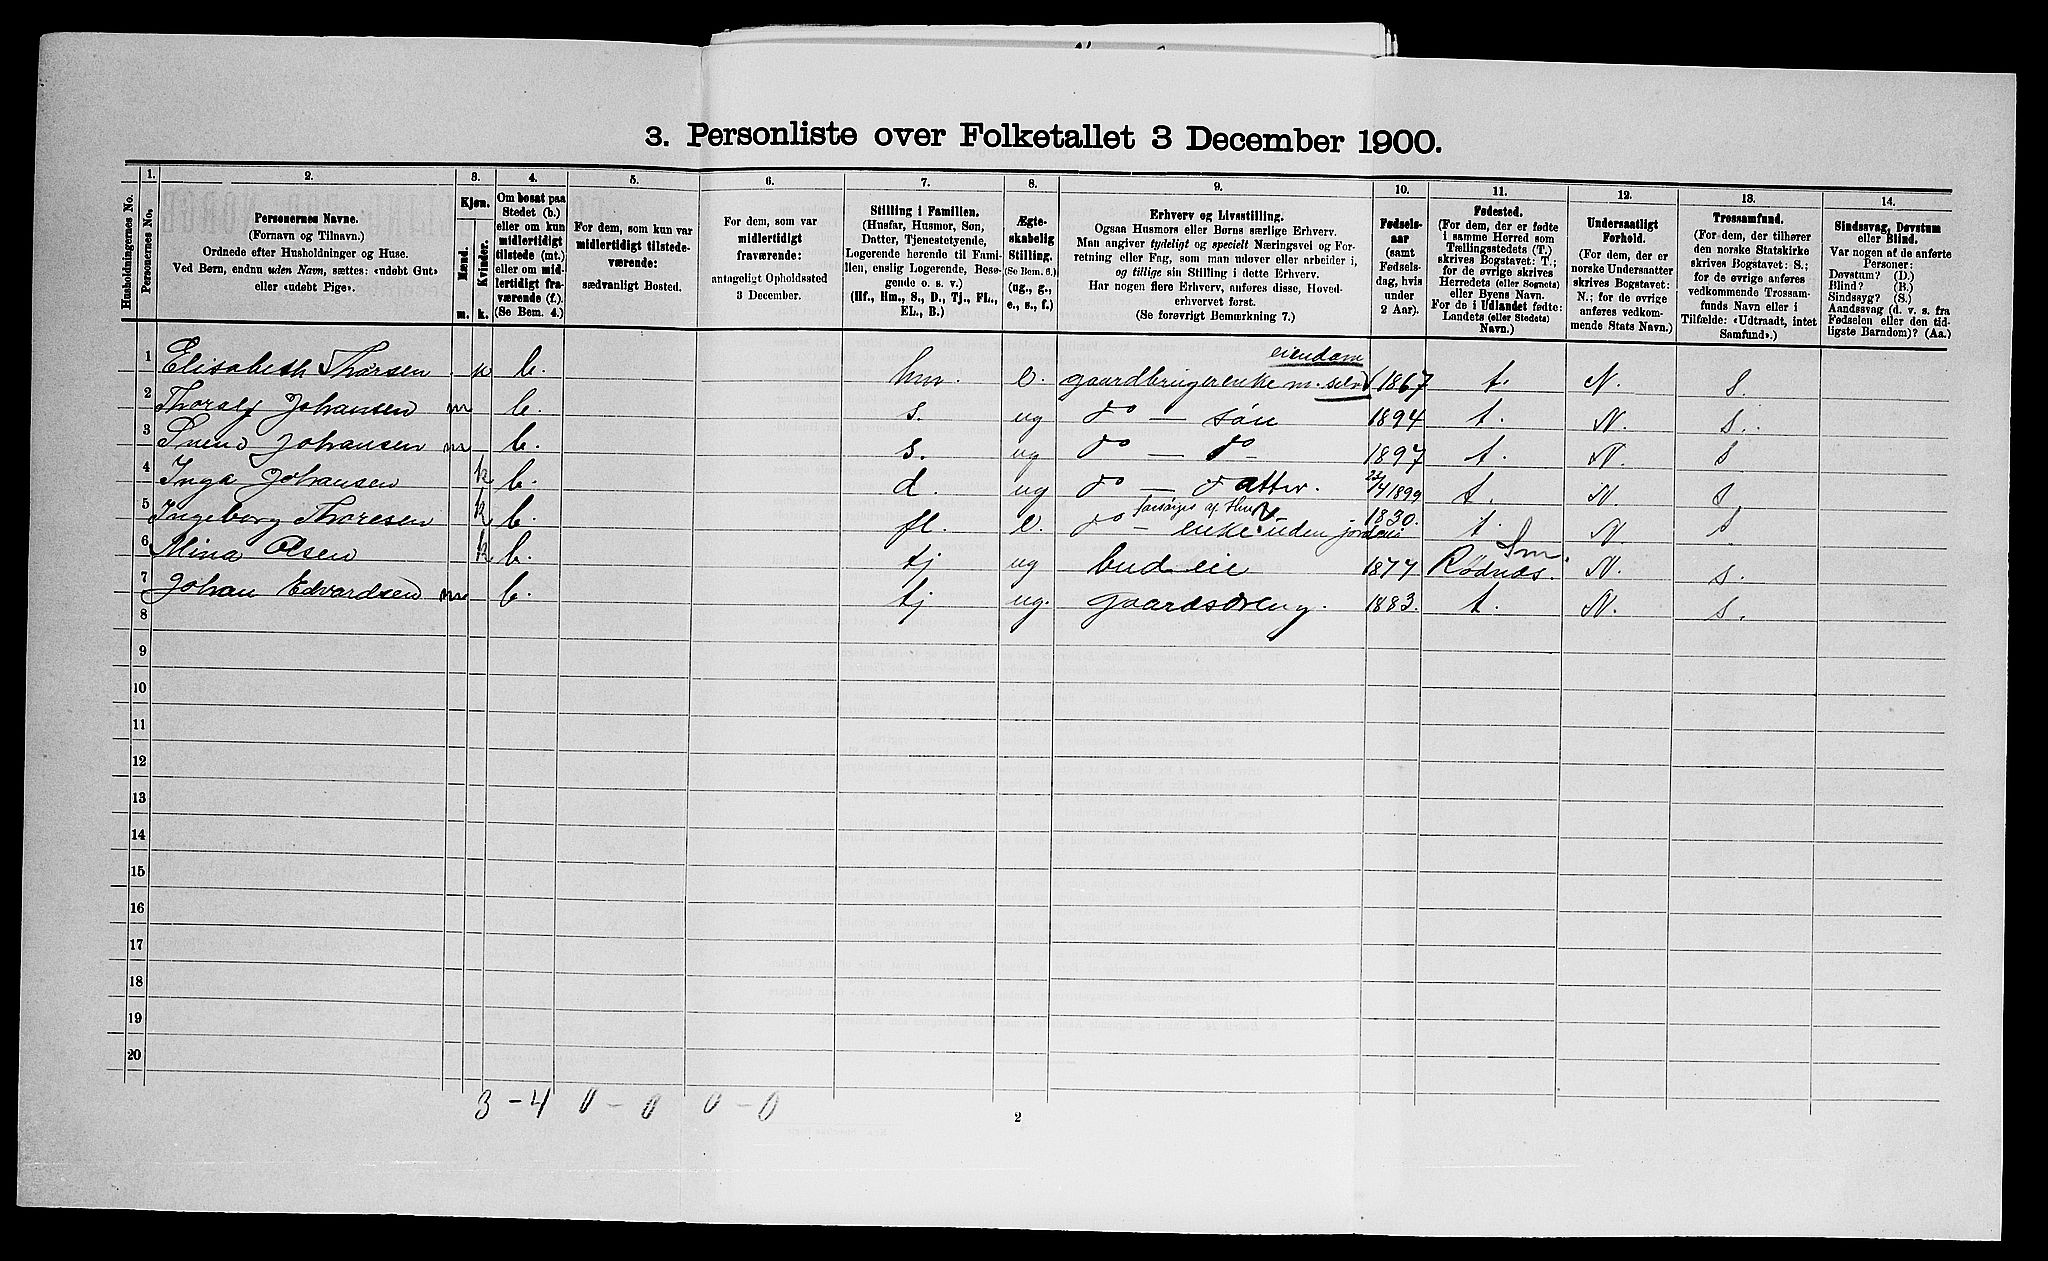 3. Personliste over Folketallet 3 December 1900.
Husholdningernes No.
1.
Personernes No.
2.
Personernes Navne.
(Fornavn og Tilnavn.)
Ordnede efter Husholdninger og Huse.
Ved Børn, endnu uden Navn, sættes: «udøbt Gut»
eller «udøbt Pige».
3.
Kjøn.
Mænd.
Kvinder.
m.
k.
4.
Om bosat paa
Stedet (b.)
eller om kun
midlertidigt
tilstede (mt.)
eller om mid-
lertidigt fra-
værende (f.).
(Se Bem. 4.)
5.
For dem, som kun var
midlertidigt tilstede-
værende:
sædvanligt Bosted.
6.
For dem, som var
midlertidigt
fraværende:
antageligt Opholdssted
3 December.
7.
Stilling i Familien.
(Husfar, Husmor, Søn,
Datter, Tjenestetyende,
Logerende hørende til Fami-
lien, enslig Logerende, Besø-
gende o. s. v.)
(Hf., Hm., S., D., Tj., FL.,
EL., B.)
8.
Ægte-
skabelig
Stilling.
(Se Bem. 6.)
(ug., g.,
e., s., f.)
9.
Erhverv og Livsstilling.
Ogsaa Husmors eller Børns særlige Erhverv.
Man angiver tydeligt og specielt Næringsvei og For-
retning eller Fag, som man udøver eller arbeider i,
og tillige sin Stilling i dette Erhverv.
Har nogen flere Erhverv, anføres disse, Hoved-
erhvervet først.
(Se forøvrigt Bemærkning 7.)
10.
Fødsels-
aar
(samt
Fødsels-
dag, hvis
under
2 Aar).
11.
Fødested.
(For dem, der er fødte
i samme Herred som
Tællingsstedets (T.)
skrives Bogstavet: T.;
for de øvrige skrives
Herredets (eller Sognets)
eller Byens Navn.
For de i Udlandet fødte:
Landets (eller Stedets)
Navn.)
12.
Undersaatligt
Forhold.
(For dem, der er
norske Undersaatter
skrives Bogstavet:
N.; for de øvrige
anføres vedkom-
mende Stats Navn.)
13.
Trossamfund.
(For dem, der tilhører
den norske Statskirke
skrives Bogstavet: S.;
for de øvrige anføres
vedkommende Trossam-
funds Navn eller i
Tilfælde: «Udtraadt, intet
Samfund».)
14.
Sindssvag, Døvstum
eller Blind.
Var nogen af de anførte
Personer:
Døvstum? (D.)
Blind? (B.)
Sindssyg? (S.)
Aandssvag (d. v. s. fra
Fødselen eller den tid-
ligste Barndom)? (Aa.)
eiendom
1 Elisabeth Thorsen k b. hm. e. gaardbrugerenke m. selv 1867 t. N. S.
2 Thoralf Johansen m b. s. ug do — søn 1894 t. N. S.
3 Svend Johansen m b. s. ug do — do 1897 t. N. S
4 Inga Johansen k b. d. ug do — datter. 22/4 1899 t. N. S
forsørges af
5 Ingeborg Thoresen k b. fl. e. do — enke uden jordvei 1830. t. N. S.
Sm.
6 Mina Olsen k b. tj ug budeie 1877 Rødnæs. N. S.
7 Johan Edvardsen m b. tj ug. gaardsdreng. 1883. t. N. S.
8
9
10
11
12
13
14
15
16
17
18
19
20
3 - 4 0 - 0 0 - 0
2